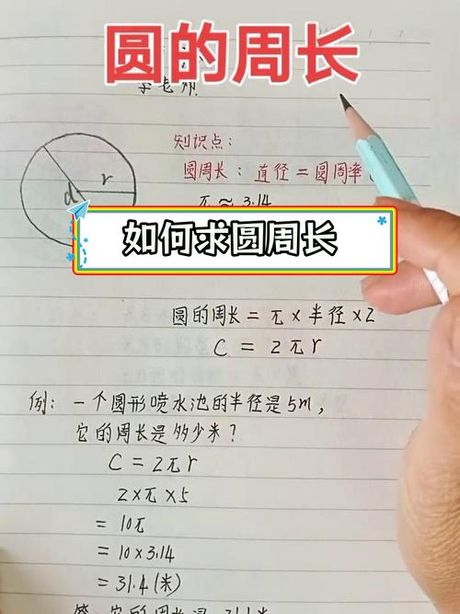 圆的周长
李老师
知识点：
圆周长：直径＝圆周率
r
d
π≈3.14
如何求圆周长
圆的周长＝π×半径×2
C＝2πr
例：一个圆形喷水池的半径是5m，
它的周长是多少米？
C＝2πr
2×π×5
＝10π
＝10×3.14
＝31.4(米)
答：它的周长是31.4米